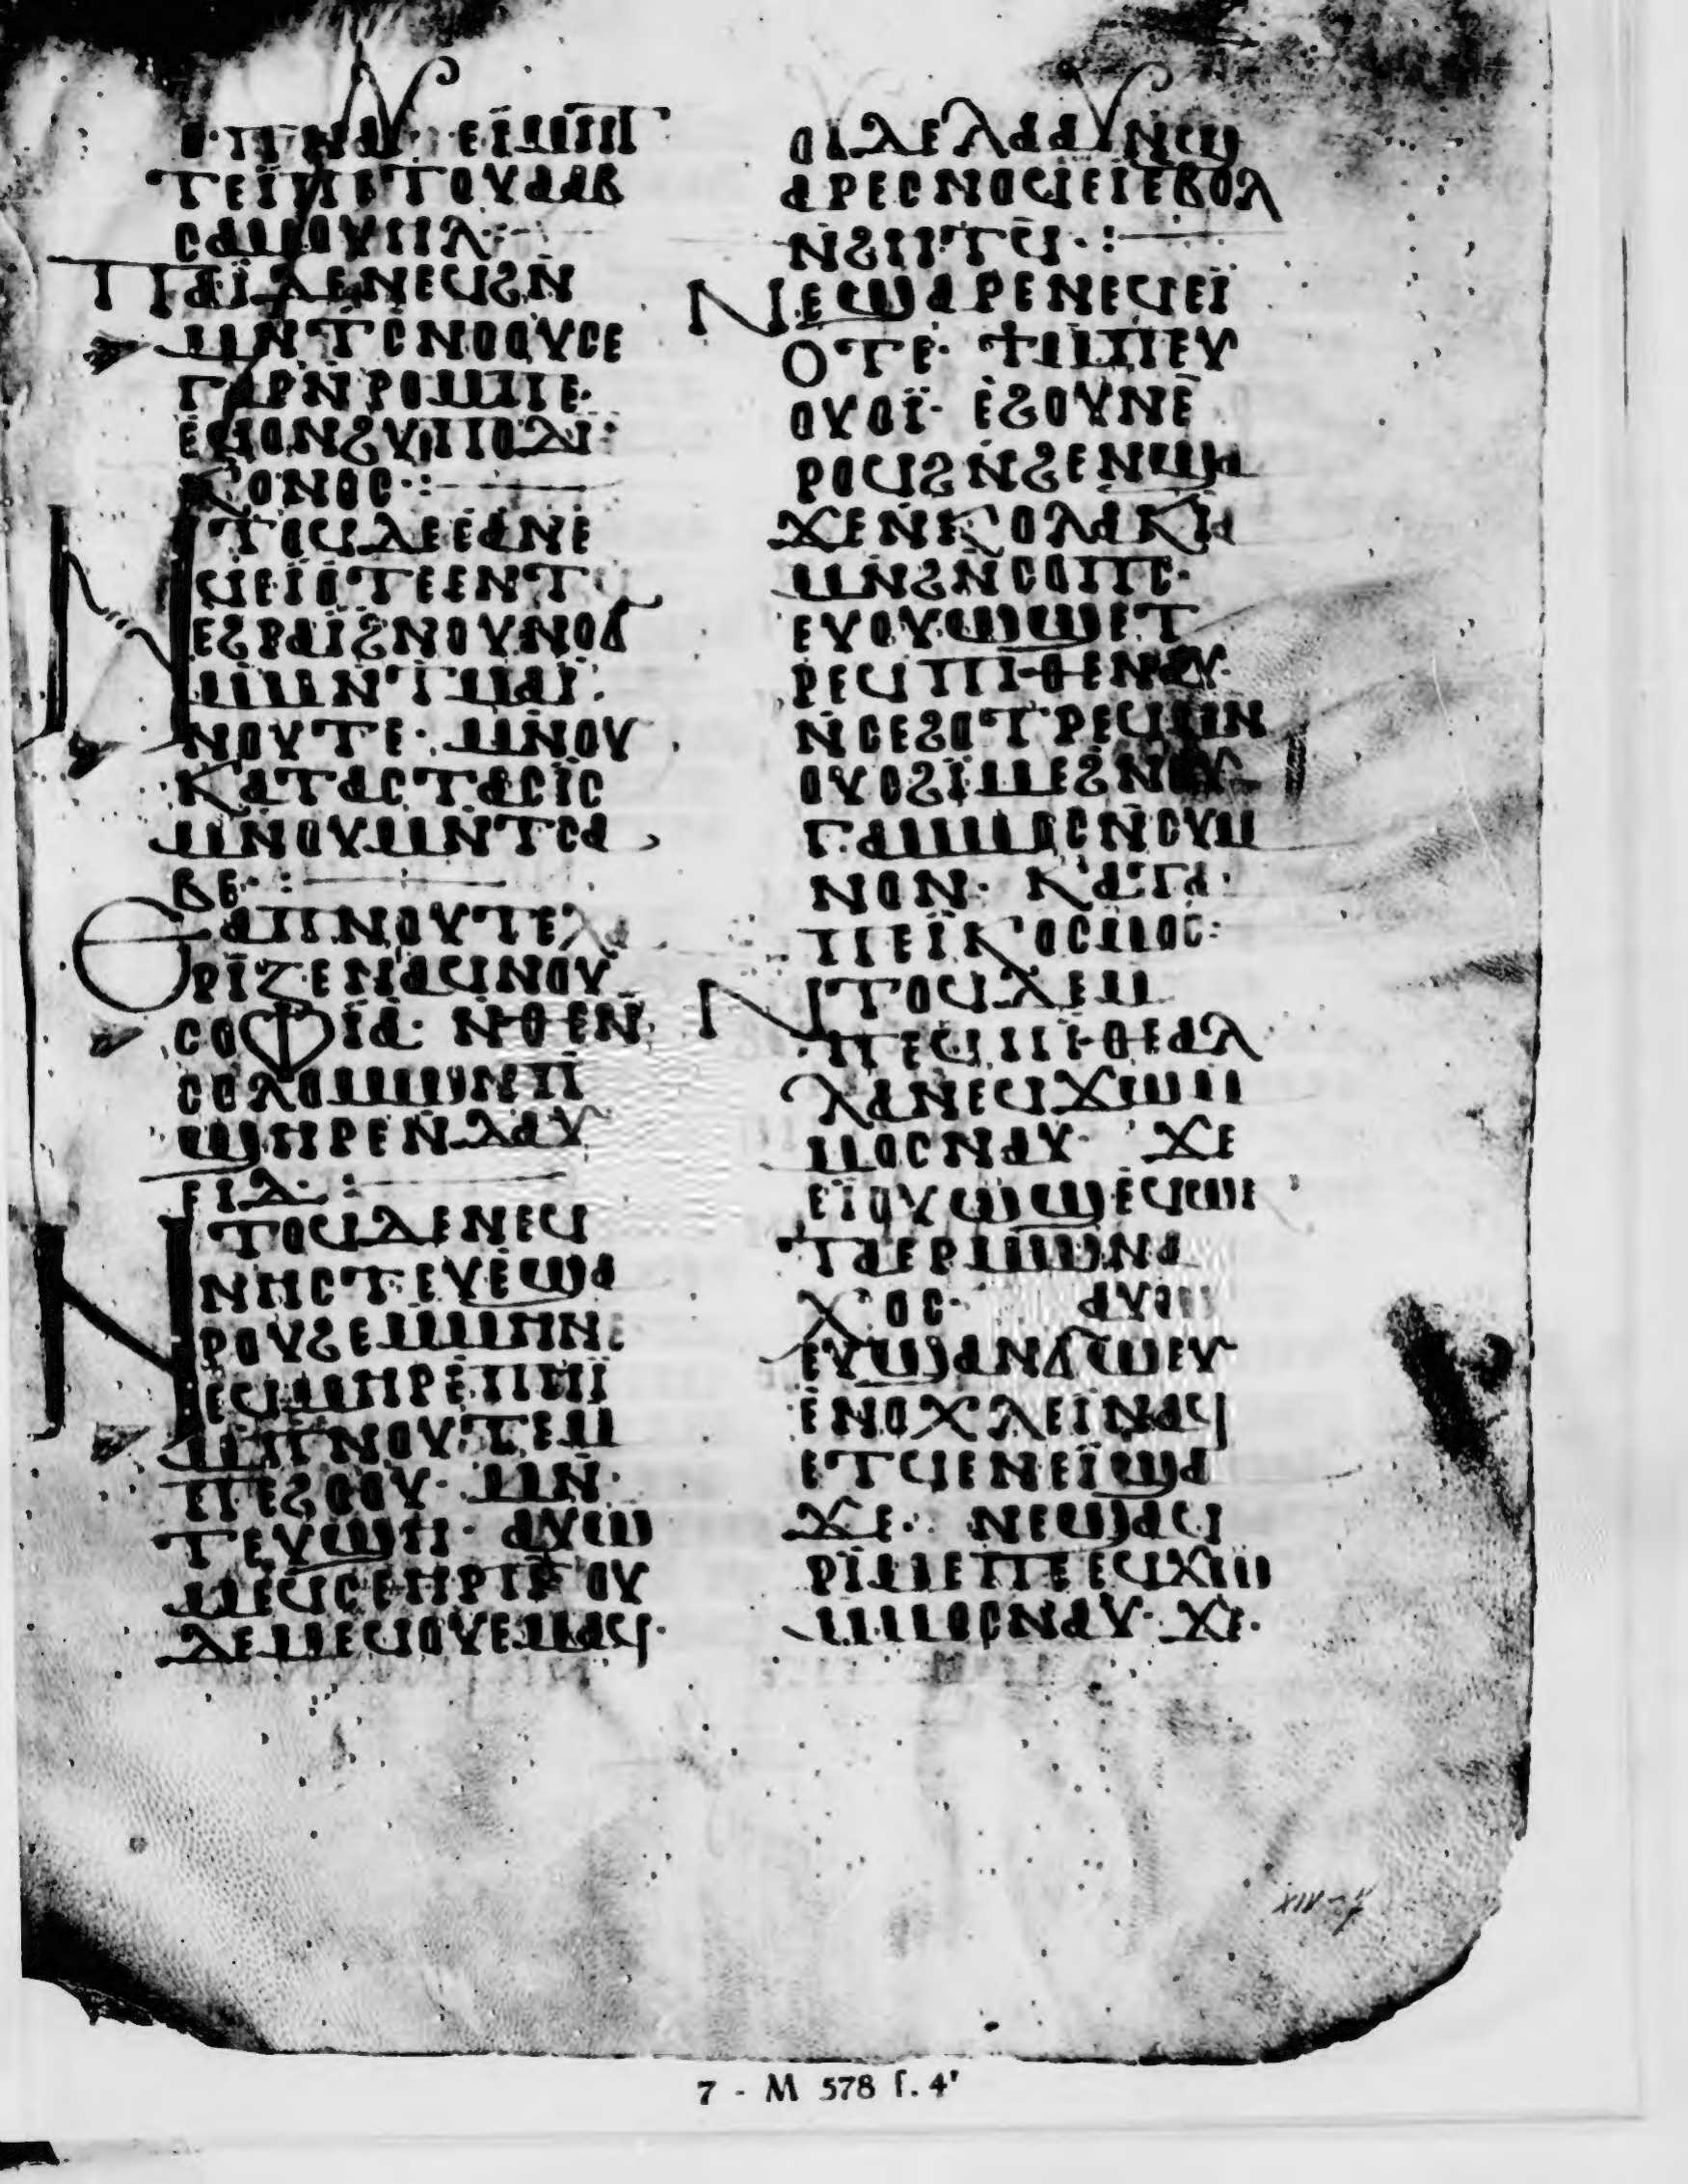 ⲧⲉⲓⲙⲉⲧⲟⲩⲁⲁⲃ
ⲥⲁⲙⲟⲩⲏⲗ·:
ⲡⲁⲓ̈ⲇⲉⲛⲉϥϩⲛ̄
ⲙⲛ̄ⲧⲥⲛⲟⲟⲩⲥⲉ
ⲅⲁⲣⲛ̄ⲣⲟⲙⲡⲉ·
ⲉϥⲟⲛϩⲩⲡⲟⲇⲓ
ⲕⲟⲛⲟⲥ·:
ⲛⲧⲟϥⲇⲉⲉⲁⲛⲉ
ϥⲉⲓⲟⲧⲉⲉⲛⲧϥ
ⲉϩⲣⲁⲓ̈ϩⲛⲟⲩⲛⲟϭ
ⲙⲙⲛⲧⲙⲁⲓ̈
ⲛⲟⲩⲧⲉ· ⲙⲛⲟⲩ
ⲕⲁⲧⲁⲥⲧⲁⲥⲓⲥ
ⲙⲛⲟⲩⲙⲛⲧⲥⲁ
ⲃⲉ·:
ⲉⲁⲡⲛⲟⲩⲧⲉⲭⲁ
ⲣⲓⲍⲉⲛⲁϥⲛⲟⲩ
ⲥⲟⲫⲓⲁ· ⲛⲑⲉⲛ
ⲥⲟⲗⲟⲙⲱⲛⲡ
ϣⲏⲣⲉⲛⲇⲁⲩ
ⲉⲓⲇ·:
ⲛⲧⲟϥⲇⲉⲛⲉϥ
ⲛⲏⲥⲧⲉⲩⲉϣⲁ
ⲣⲟⲩϩⲉⲙⲙⲏⲛⲉ
ⲉϥϣⲙϣⲉⲙ
ⲡⲛⲟⲩⲧⲉⲙ
ⲡⲉϩⲟⲟⲩ· ⲙⲛ
ⲧⲉⲩϣⲏ· ⲁⲩⲱ
ⲙⲉϥⲥⲉⲏⲣⲡ· ⲟⲩ
ⲇⲉⲙⲉϥⲟⲩⲉⲙⲁϥ·
ⲟⲩⲇⲉⲗⲁⲁⲩⲛϣ
ⲁⲣⲉⲥⲛⲟϥⲉⲓⲉⲃⲟⲗ
ⲛϩⲏⲧϥ·:
ⲛⲉϣⲁⲣⲉⲛⲉϥⲉⲓ
ⲟⲧⲉ· ϯⲙⲡⲉⲩ
ⲟⲩⲟⲓ̈· ⲉϩⲟⲩⲛⲉ
ⲣⲟϥϩⲛϩⲉⲛϣⲁ
ϫⲉⲛⲕⲟⲗⲁⲕⲓⲁ
ⲙⲛϩⲛⲥⲟⲡⲥ·
ⲉⲩⲟⲩⲱϣⲉⲧ
ⲣⲉϥⲡⲓⲑⲉⲛⲁⲩ·
ⲛⲥⲉϩⲟⲧⲣⲉϥⲙⲛ
ⲟⲩⲥϩⲓⲙⲉϩⲛⲟⲩ
ⲅⲁⲙⲟⲥⲛⲥⲩⲙ
ⲛⲟⲛ· ⲕⲁⲧⲁ
ⲡⲉⲓ̈ⲕⲟⲥⲙⲟⲥ·
ⲛⲧⲟϥⲇⲉⲙ
ⲡⲉϥⲡⲓⲑⲉⲁⲗ
ⲗⲁⲛⲉϥϫⲱⲙ
ⲙⲟⲥⲛⲁⲩ· ϫⲉ
ⲉⲓⲟⲩⲱϣⲉϥⲱ
ⲧⲁⲉⲣⲙⲟⲛⲁ
ⲭⲟⲥ· ⲁⲩⲱ
ⲉⲩϣⲁⲛϭⲱⲉⲩ
ⲉⲛⲟⲭⲗⲉⲓⲛⲁϥ
ⲉⲧϥⲉⲛⲉⲓ̈ϣⲁ
ϫⲉ· ⲛⲉϣⲁϥ
ⲣⲓⲙⲉⲡⲉⲉϥϫⲱ
ⲙⲙⲟⲥⲛⲁⲩ· ϫⲉ·
XIV-7
7 - M 578 f. 4ʳ